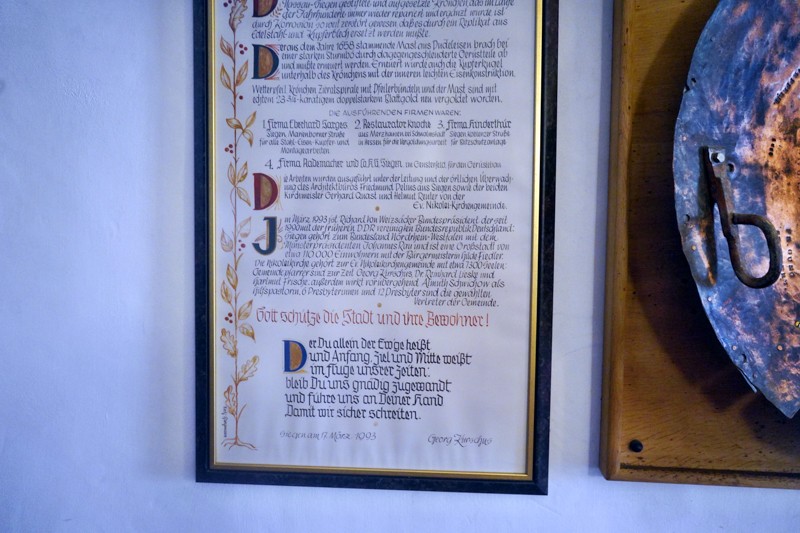 Nassau-Siegen gestiftete und aufgesetzte Krönchen das im Lauf
der Jahrhunderte immer wieder repariert worden wurde ist
durch Korrosion so zerstört gewesen daß es durch ein Replikat aus
Edelstahl und Kupferblech ersetzt werden mußte.
Der aus dem Jahre 1658 stammende Mast aus Pudeleisen brach bei
einer starken Sturmbö durch dagegenschlagende Gerüstteile ab
und mußte erneuert werden. Erneuert wurde auch die Kupferkugel
unterhalb des Krönchens mit der inneren leichten Eisenkonstruktion.
Wetterpfeil Krönchen Zierat spirale mit Pfeilerbündeln und der Mast sind mit
echtem 23 karatigem doppelstarkem Blattgold neu vergoldet worden.
DIE AUSFÜHRENDEN FIRMEN WAREN:
1. Firma Eberhard Sarges 2. Restaurator Knoche 3. Firma Kinderthür
Siegen, Marienborner Straße aus Merzhausen bei Schwalmstadt Siegen Koblenzer Straße
für alle Stahl- Eisen- Kupfer- und in Hessen für die Vergoldungsarbeit für Blitzschutzanlage
Montagearbeiten
4. Firma Rademacher und Co. K.G. Siegen im Oersdorf für den Gerüstbau
Die Arbeiten wurden ausgeführt unter der Leitung und der örtlichen Überwach-
ung des Architektbüros Friedmund Delius aus Siegen sowie der beiden
Kirchmeister Gerhard Quast und Helmut Reuter von der
Ev. Nikolai-Kirchengemeinde.
Im März 1993 ist Richard von Weizsäcker Bundespräsident der seit
1990 mit der früheren DDR vereinigten Bundesrepublik Deutschland:
Siegen gehört zum Bundesland Nordrhein-Westfalen mit dem
Ministerpräsidenten Johannes Rau und ist eine Großstadt von
etwa 110000 Einwohnern mit der Bürgermeisterin Hilde Fiedler.
Die Nikolaikirche gehört zur Ev. Nikolaikirchengemeinde mit etwa 7300 Seelen
Gemeindepfarrer sind zur Zeit Georg Kürschus, Dr. Reinhard Lieske und
Hartmut Frische, außerdem wirkt vorübergehend Almuth Schwichow als
Hilfspastorin, 6 Presbyterinnen und 12 Presbyter sind die gewählten
Vertreter der Gemeinde.
Gott schütze die Stadt und ihre Bewohner!
Der Du allein der Ew'ge heißt
und Anfang, Ziel und Mitte weißt
im Fluge unsrer Zeiten:
bleib Du uns gnädig zugewandt
und führe uns an Deiner Hand
Damit wir sicher schreiten.
Siegen am 17. März 1993 Georg Kürschus